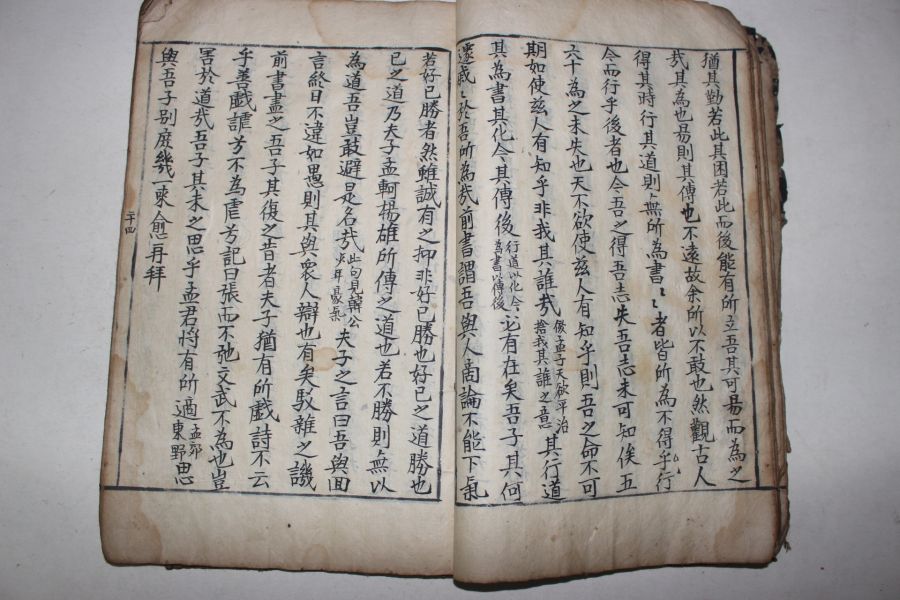 猶其勤若此其困若此而後能有所立吾其可易而為之
㢤其為也易則其傳也不遠故余所以不敢也然觀古人
得其時行其道則無所為書〻者皆所為不得行乎
今而行乎後者也今吾之得吾志失吾志未可知俟五
六十為之未失也天不欲使兹人有知乎則吾之命不可
期如使兹人有知乎非我其誰㢤倣孟子天欲平治捨我其誰之意其行道
其為書其化今其傳後行道以化今為書以傳後必有在矣吾子其何
遽戚〻於吾所為㢤前書謂吾與人啇論不能下氣
若好已勝者然雖誠有之抑非好已勝也好已之道勝也
已之道乃夫子孟軻楊雄所傳之道也若不勝則無以
為道吾豈敢避是名㢤此句見韓公少年豪氣夫子之言曰吾與回
言終日不違如愚則其與衆人辯也有矣駁雜之譏
前書盡之吾子其復之昔者夫子猶有所戲詩不云
乎善戲謔兮不為虐兮記曰張而不弛文武不為也豈
害於道㢤吾子其未之思乎孟君將有所適孟郊東野思
與吾子别庶幾一來愈再拜
二十四